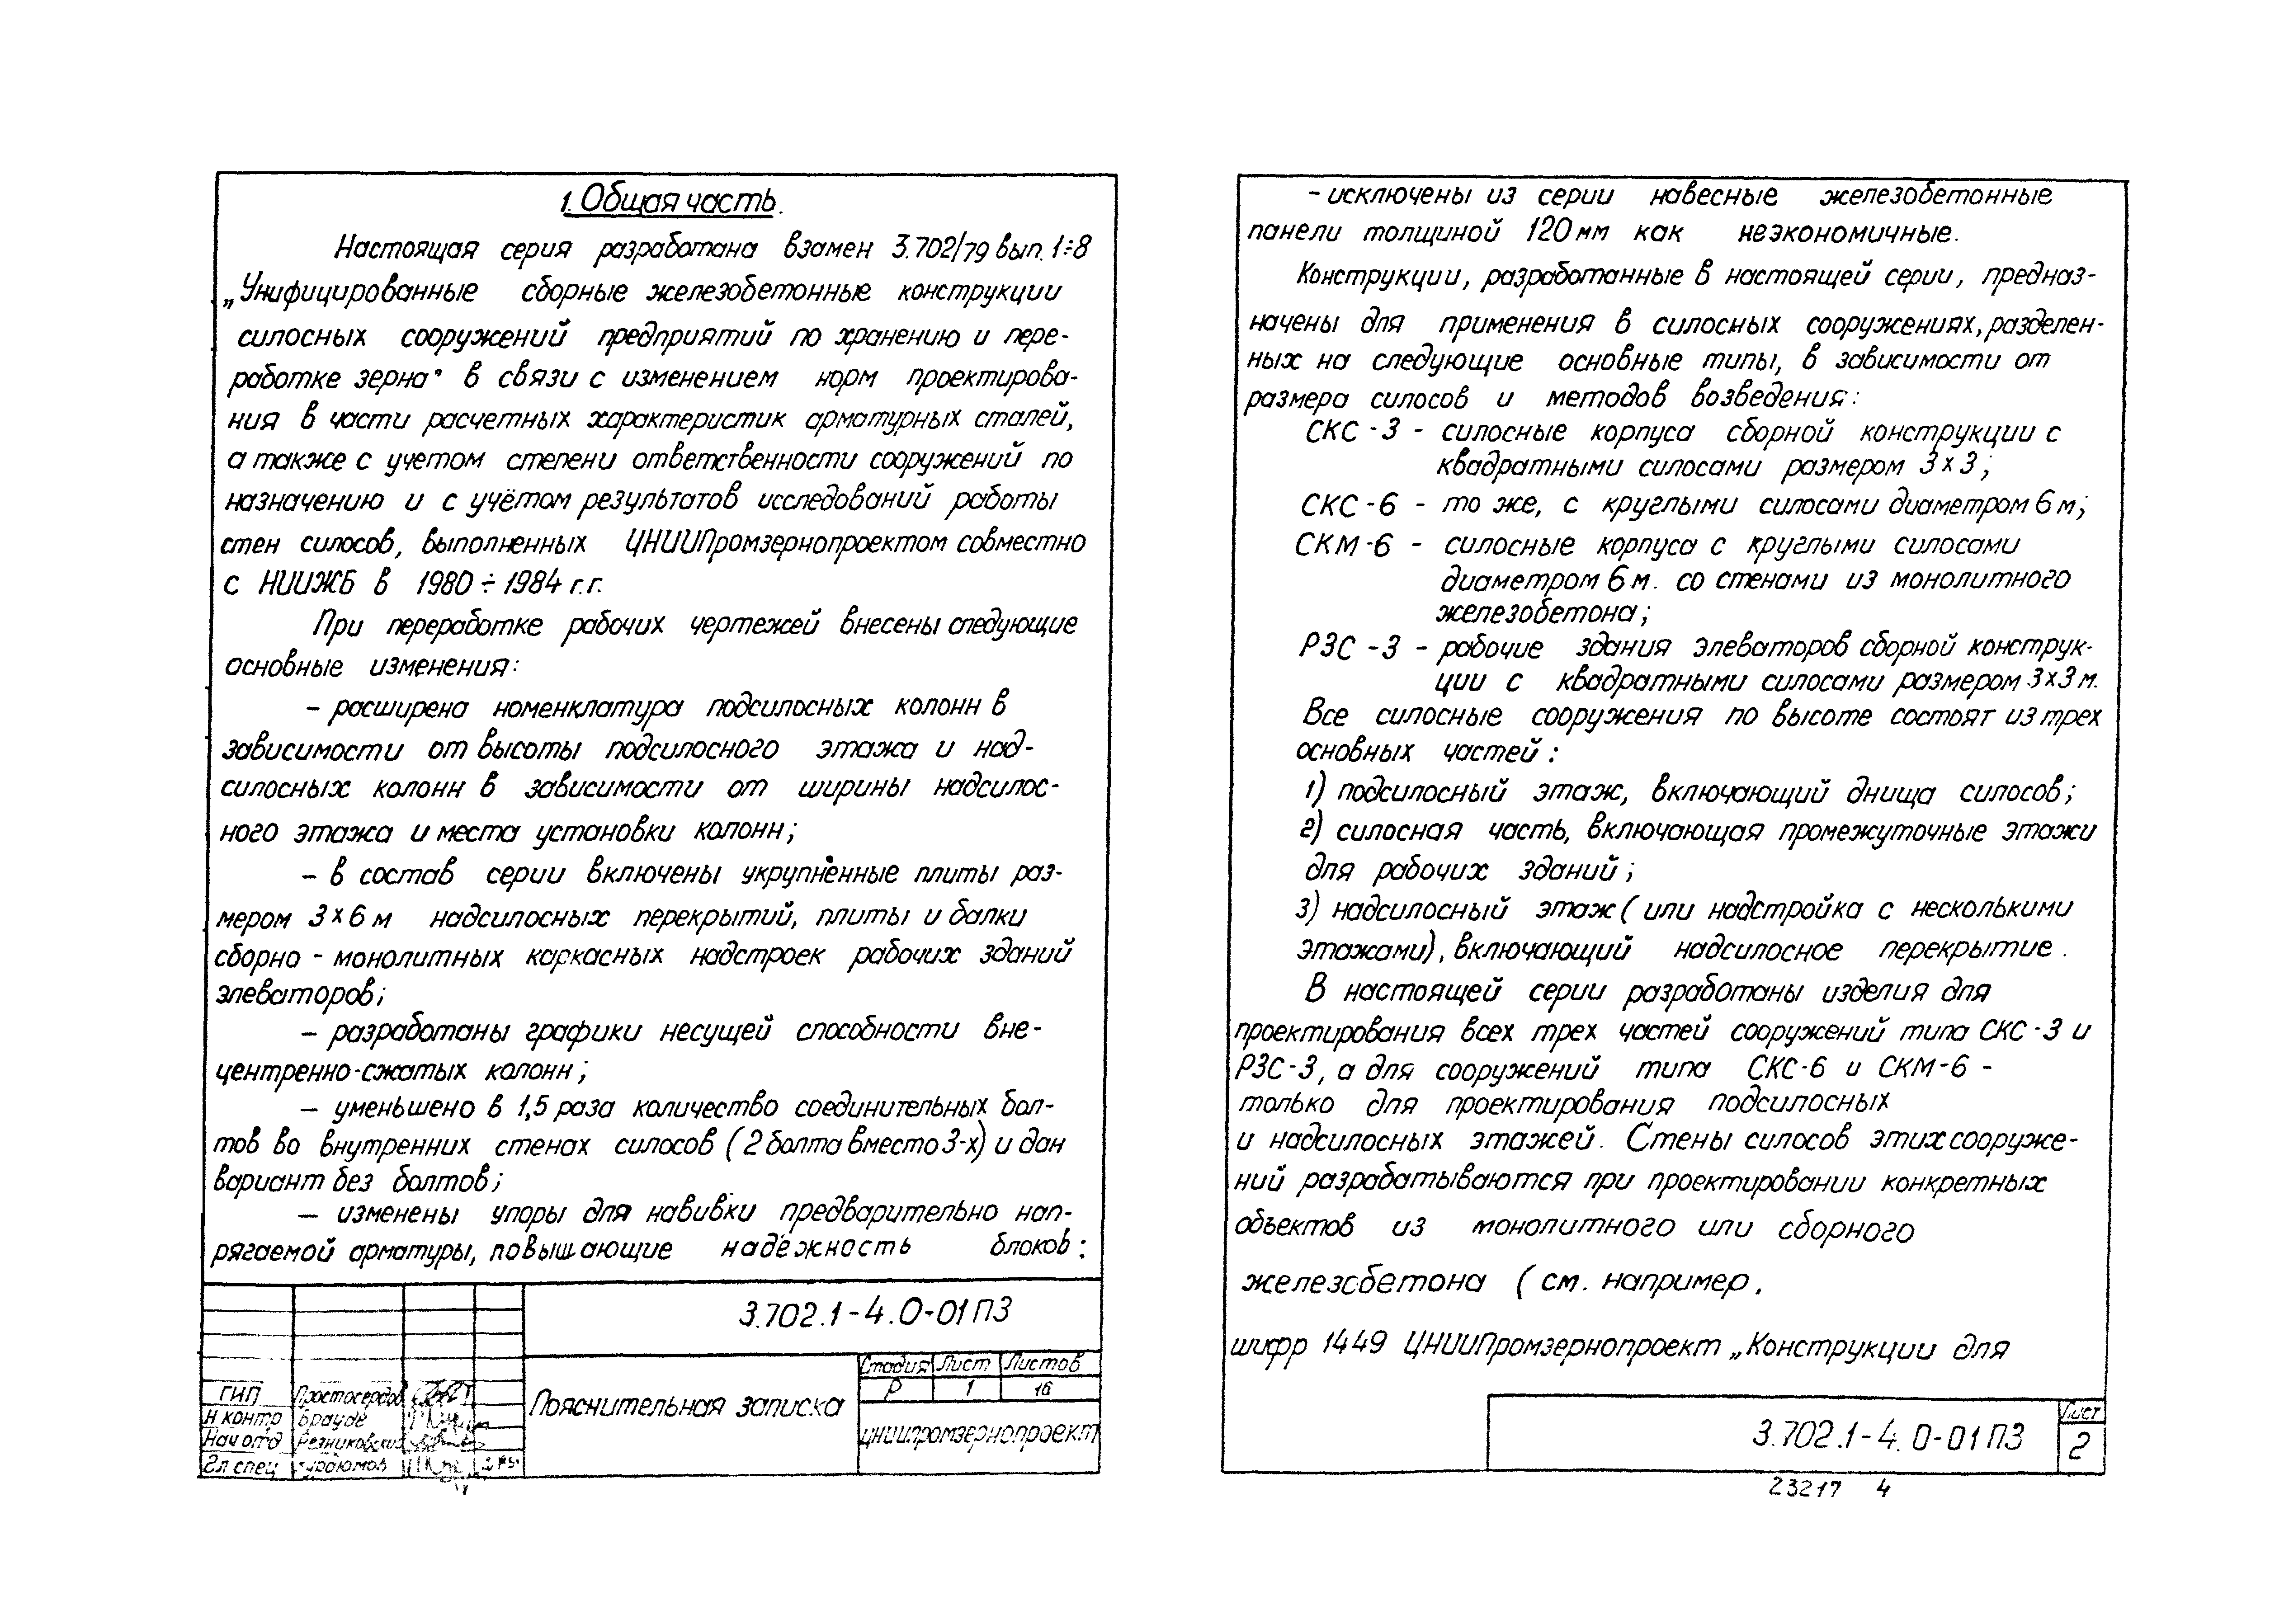 1. Общая часть.
Настоящая серия разработана взамен 3.702/79 вып. 1÷8
„Унифицированные сборные железобетонные конструкции
силосных сооружений предприятий по хранению и пере-
работке зерна" в связи с изменением норм проектирова-
ния в части расчетных характеристик арматурных сталей,
а также с учетом степени ответственности сооружений по
назначению и с учётом результатов исследований работы
стен силосов, выполненных ЦНИИПромзернопроектом совместно
с НИИЖБ в 1980÷1984 г.г.
При переработке рабочих чертежей внесены следующие
основные изменения:
– расширена номенклатура подсилосных колонн в
зависимости от высоты подсилосного этажа и над-
силосных колонн в зависимости от ширины надсилос-
ного этажа и места установки колонн;
– в состав серии включены укрупнённые плиты раз-
мером 3×6 м надсилосных перекрытий, плиты и балки
сборно - монолитных каркасных надстроек рабочих зданий
элеваторов;
– разработаны графики несущей способности вне-
центренно-сжатых колонн;
– уменьшено в 1,5 раза количество соединительных бол-
тов во внутренних стенах силосов (2 болта вместо 3-х) и дан
вариант без болтов;
– изменены упоры для навивки предварительно нап-
рягаемой арматуры, повышающие надёжность блоков:
3.702.1-4.0-01ПЗ
Стадия Лист Листов
Р 1 16
Пояснительная записка
ЦНИИпромзернопроект
ГИП Простосердов
Н контр Брауде
Нач отд Резниковский
Гл спец
– исключены из серии навесные железобетонные
панели толщиной 120 мм как неэкономичные.
Конструкции, разработанные в настоящей серии, предназ-
начены для применения в силосных сооружениях, разделен-
ных на следующие основные типы, в зависимости от
размера силосов и методов возведения:
СКС-3 - силосные корпуса сборной конструкции с
квадратными силосами размером 3×3;
СКС-6 - то же, с круглыми силосами диаметром 6 м;
СКМ-6 - силосные корпуса с круглыми силосами
диаметром 6 м. со стенами из монолитного
железобетона;
РЗС-3 - рабочие здания элеваторов сборной конструк-
ции с квадратными силосами размером 3×3 м.
Все силосные сооружения по высоте состоят из трех
основных частей:
1) подсилосный этаж, включающий днища силосов;
2) силосная часть, включающая промежуточные этажи
для рабочих зданий;
3) надсилосный этаж (или надстройка с несколькими
этажами), включающий надсилосное перекрытие.
В настоящей серии разработаны изделия для
проектирования всех трех частей сооружений типа СКС-3 и
РЗС-3, а для сооружений типа СКС-6 и СКМ-6 -
только для проектирования подсилосных
и надсилосных этажей. Стены силосов этих сооруже-
ний разрабатываются при проектировании конкретных
объектов из монолитного или сборного
железобетона (см. например,
шифр 1449 ЦНИИПромзернопроект „Конструкции для
3.702.1-4.0-01ПЗ
Лист
2
23217 4